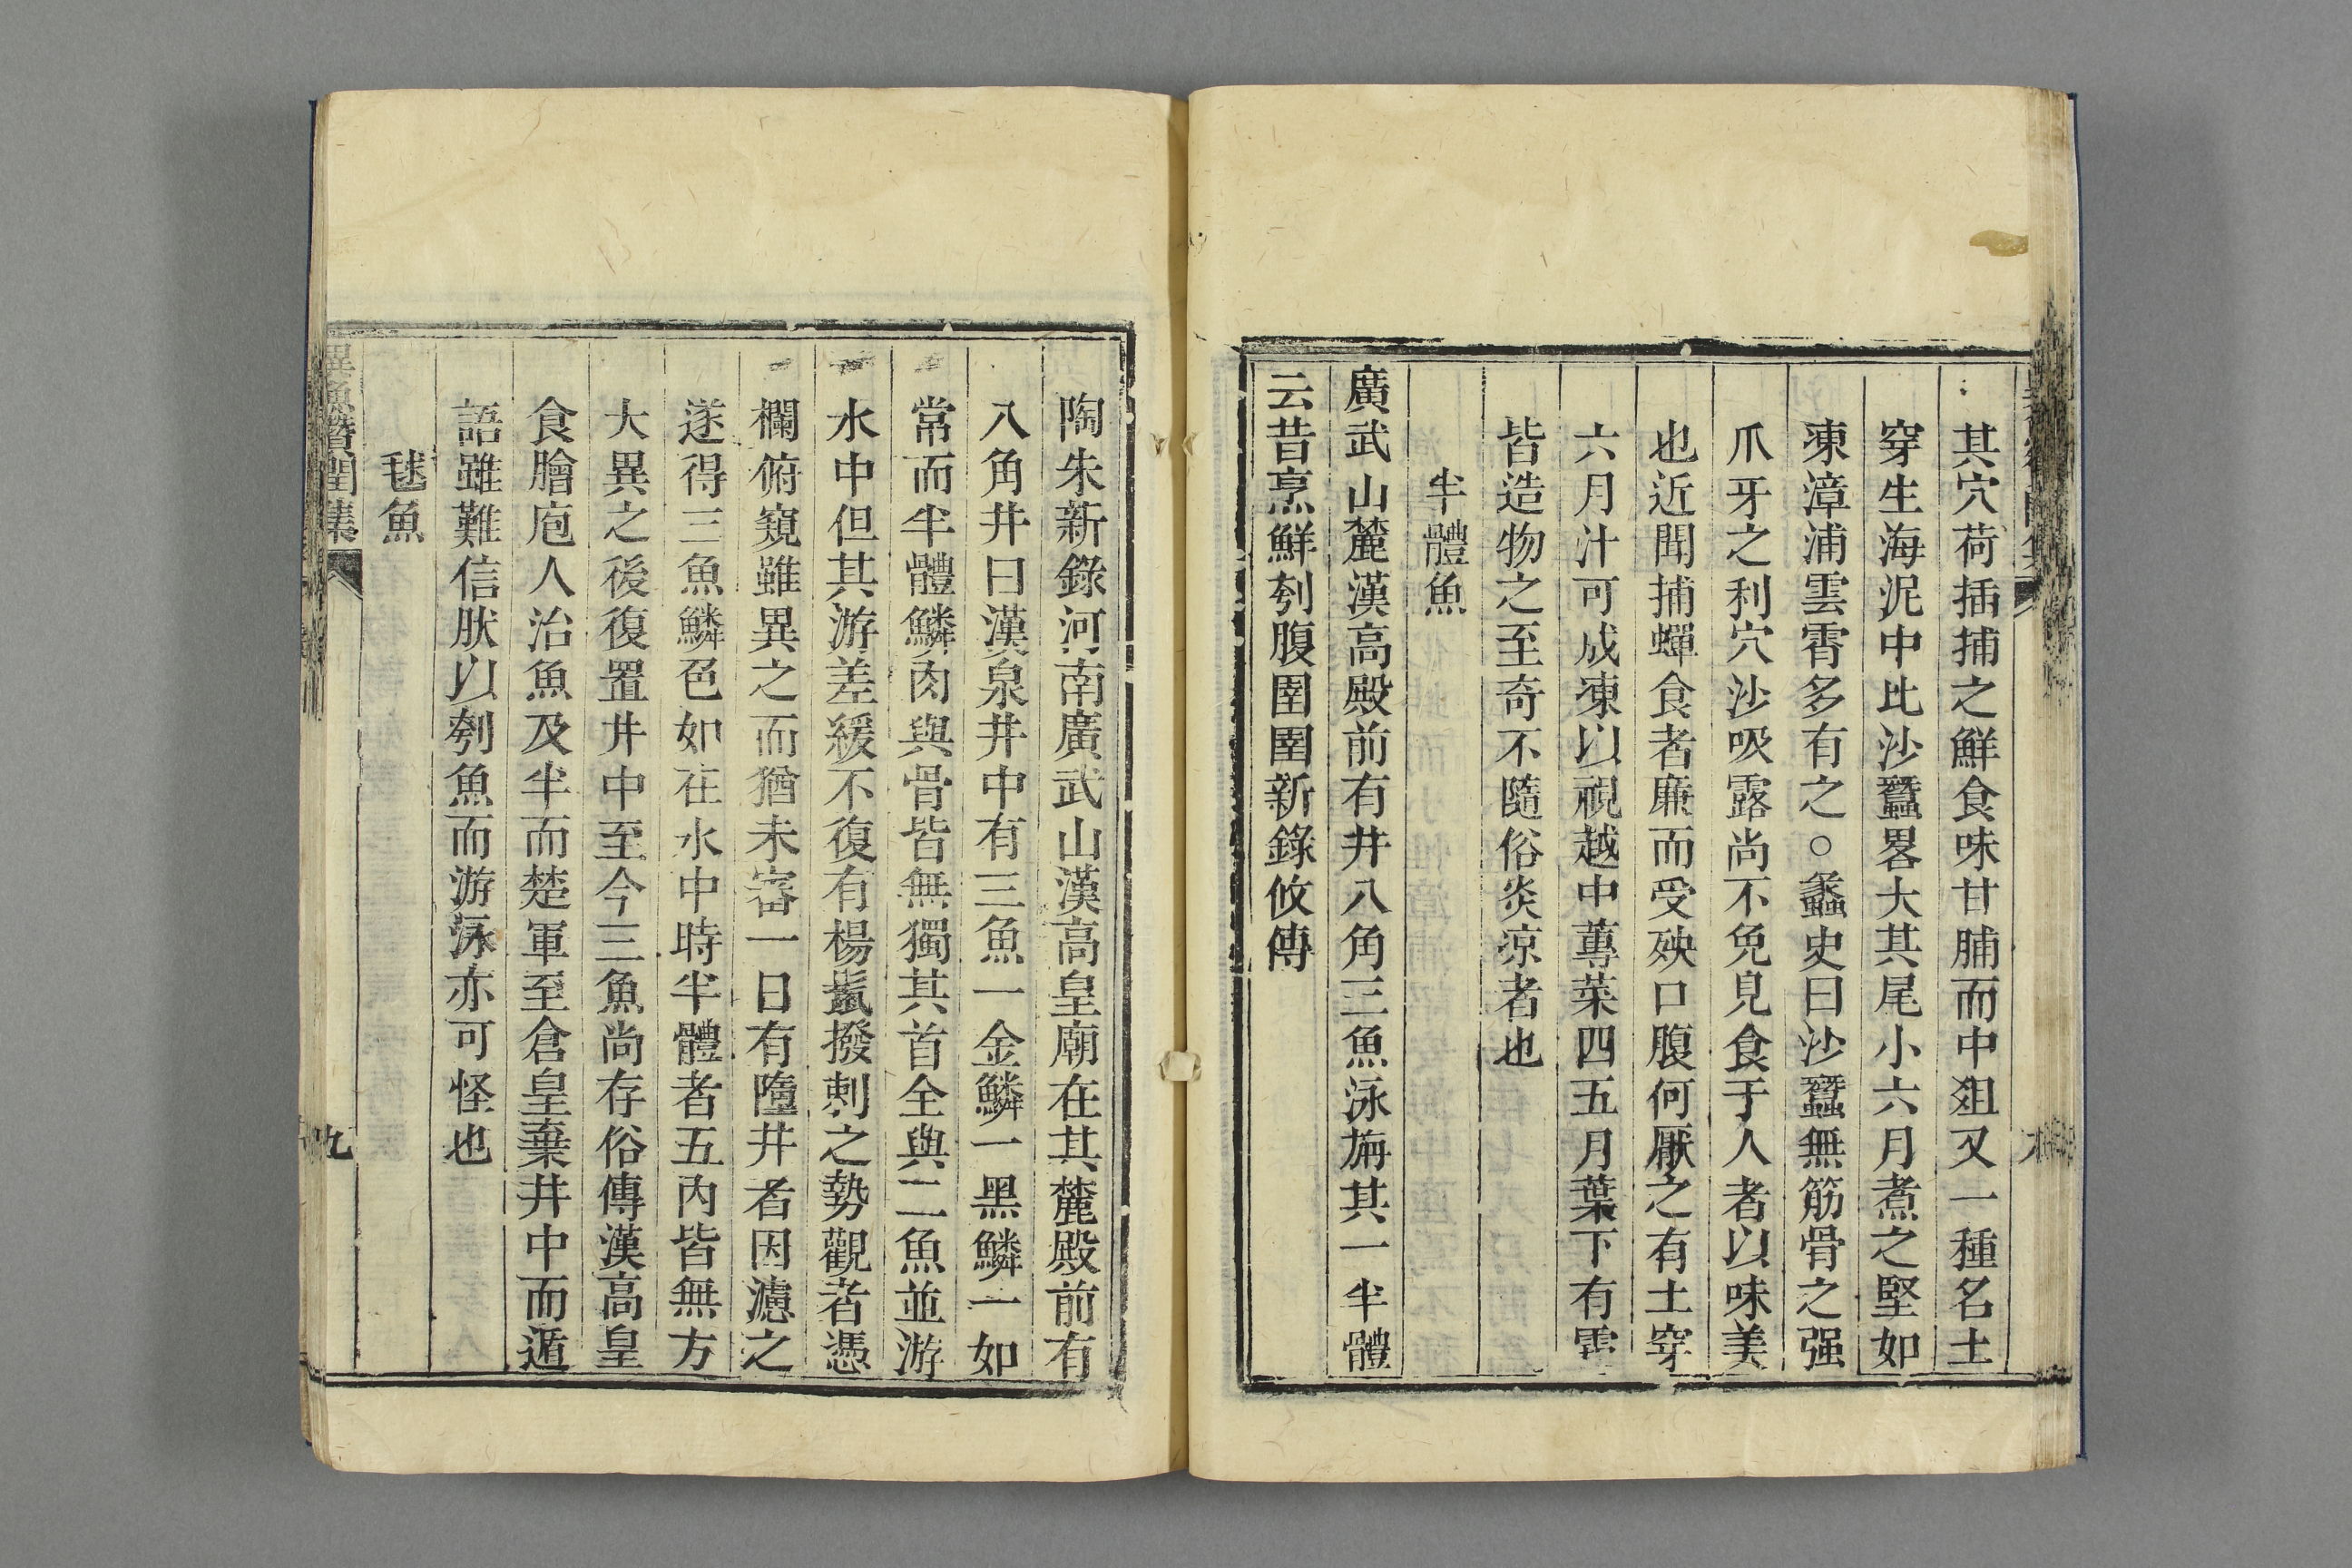 其穴荷插捕之鮮食味甘脯而中爼又一種名土
穿生海泥中比沙蠶畧大其尾小六月煮之堅如
凍漳浦雲霄多有之○蠡史曰沙蠶無筋骨之强
爪牙之利穴沙吸露尚不免見食于人者以味美
也近聞捕蟬食者廉而受殃口腹何厭之有土穿
六月汁可成凍以視越中蓴菜四五月葉下有雪
皆造物之至奇不隨俗炎凉者也
半體魚
廣武山麓漢高殿前有井八角三魚泳旃其一半體
云昔烹鮮刳腹圉圉新錄攸傳
陶朱新錄河南廣武山漢高皇廟在其麓殿前有
八角井曰漢泉井中有三魚一金鱗一黑鱗一如
常而半體鱗肉與骨皆無獨其首全與二魚並游
水中但其游差緩不復有楊鬣撥剌之勢觀者憑
欄俯窺雖異之而猶未審一日有墮井者因濾之
遂得三魚鱗色如在水中時半體者五內皆無方
大異之後復置井中至今三魚尚存俗傳漢高皇
食膾庖人治魚及半而楚軍至倉皇棄井中而遁
語雖難信肰以刳魚而游泳亦可怪也
毬魚
異魚贊閏集
九